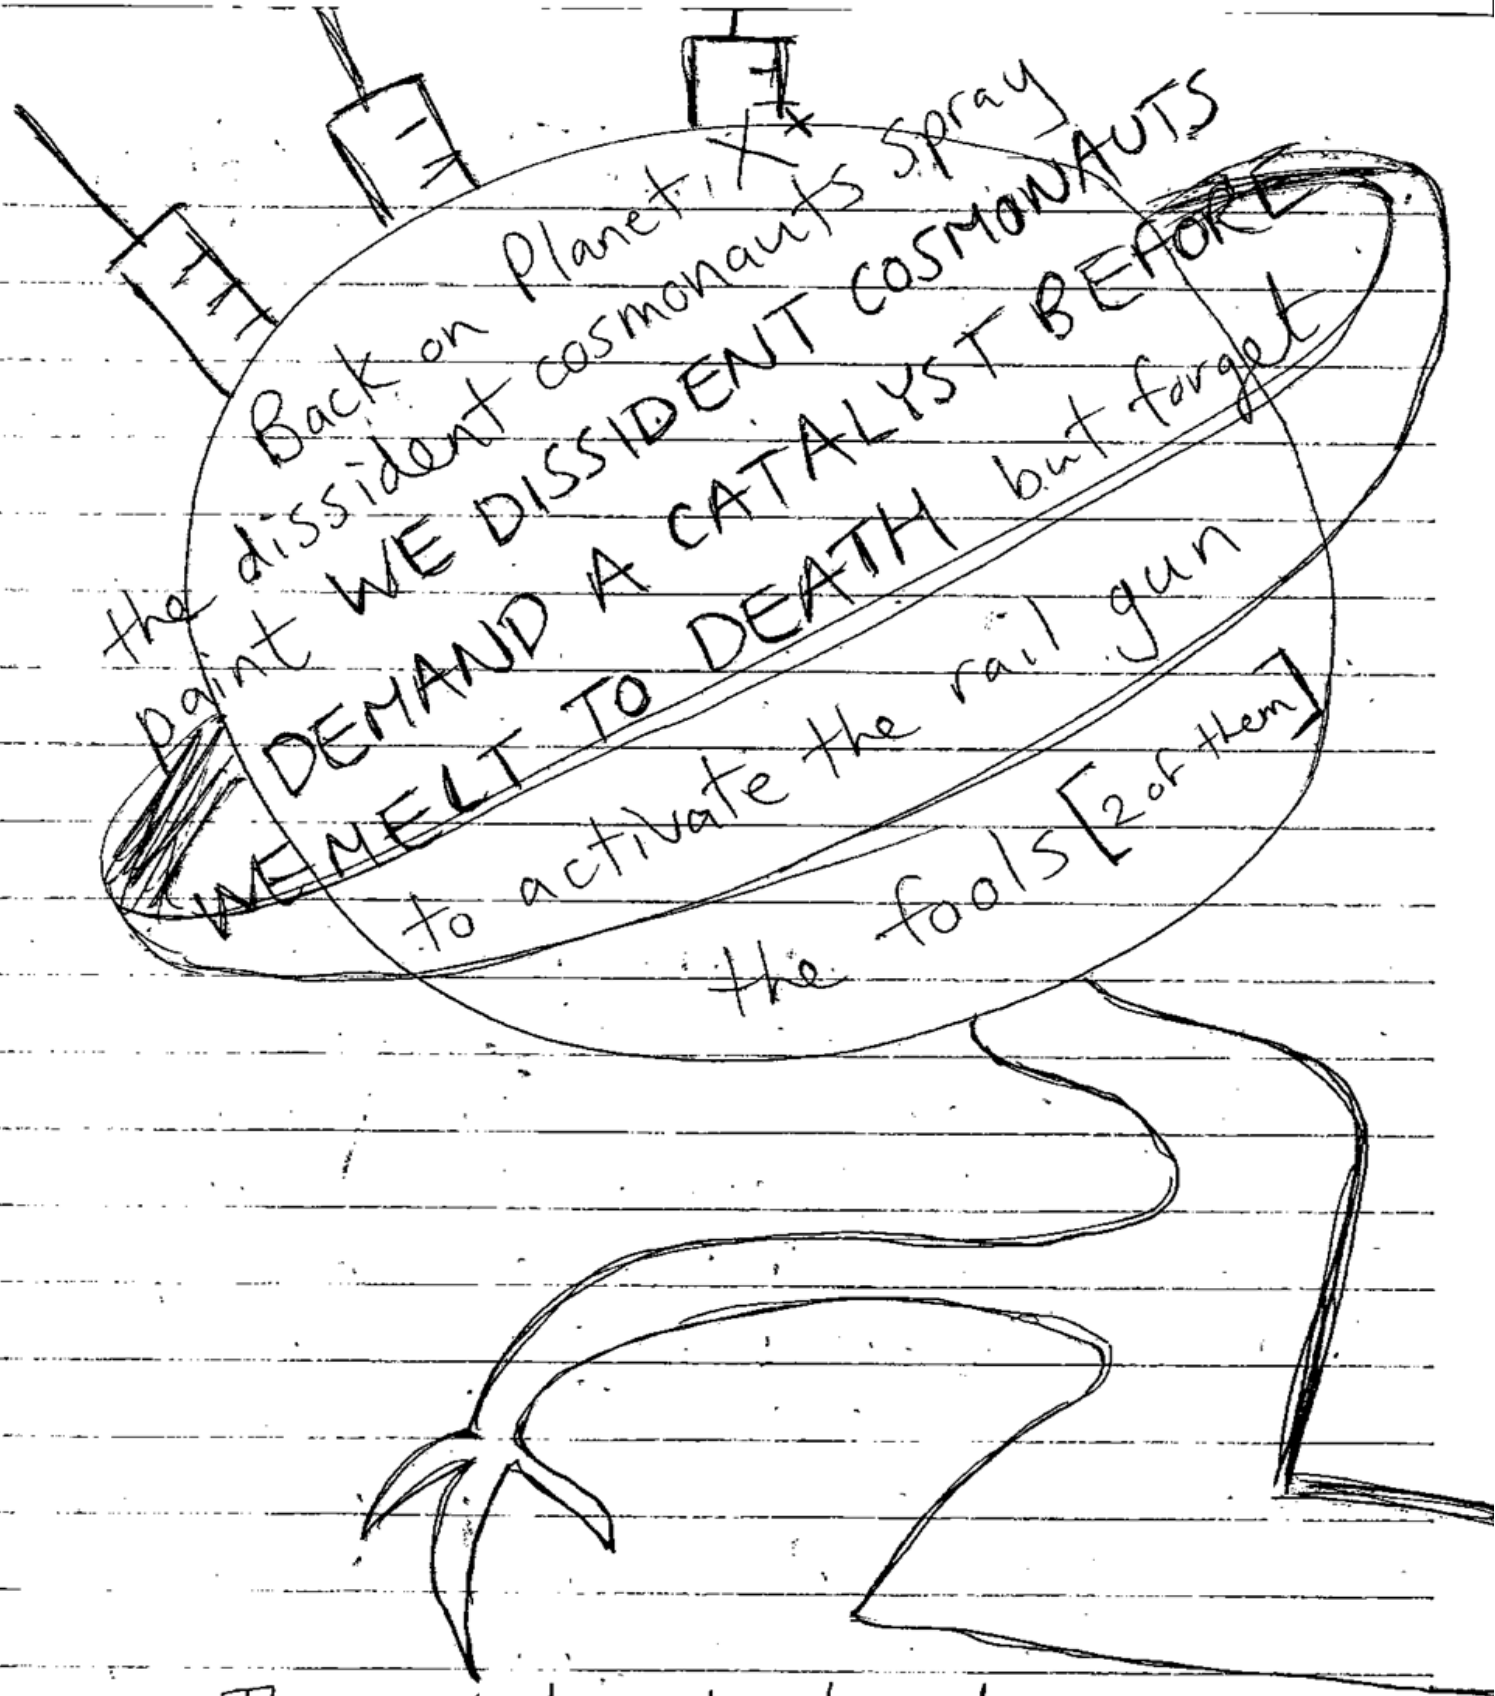 Back on Planet X*
the dissident cosmonauts spray
paint WE DISSIDENT COSMONAUTS
DEMAND A CATALYST BEFORE
WE MELT TO DEATH but forget
to activate the rail gun
the fools [2 of them]